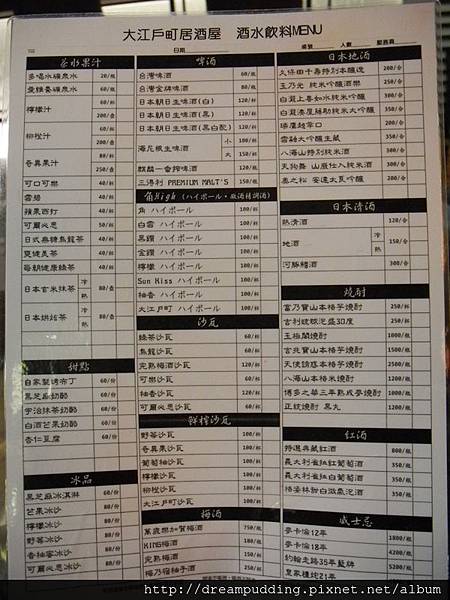 大江戶町居酒屋 酒水飲料MENU
日期
桌號
人數
茶水果汁
多喝水礦泉水 20/瓶
愛維養礦泉水 60/瓶
檸檬汁 100/杯
200/壺
柳橙汁
200/壺
奇異果汁 100/杯
250/壺
可口可樂 40/瓶
雪碧 40/瓶
蘋果西打 40/瓶
可爾必思 50/瓶
日式無糖烏龍茶
爽健美茶
每朝健康綠茶
日本玄米抹茶 冷 熱 80/壺
日本烘焙茶 冷 熱 80/壺
甜點
自家製烤布丁 60/份
黑芝麻奶酪 60/份
宇治抹茶奶酪 60/份
白酒芒果奶酪 60/份
杏仁豆腐 60/份
冰品
黑芝麻冰淇淋 60/份
芒果冰沙 80/份
檸檬冰沙 80/份
野莓冰沙 80/份
香柚蜜冰沙 80/份
可爾必思冰沙
啤酒
台灣啤酒 60/瓶
台灣金牌啤酒 80/瓶
日本朝日生啤酒(白) 120/杯
日本朝日生啤酒(黑) 120/杯
日本朝日生啤酒(黑白配) 120/杯
海尼根生啤酒 小 100/杯
大 150/杯
麒麟一番搾啤酒 100/瓶
三得利 PREMIUM MALT'S 150/瓶
角High (ハイボール・威酒精調酒)
角 ハイボール 100/杯
白雪 ハイボール 100/杯
黑鑽 ハイボール 100/杯
金鑽 ハイボール 100/杯
檸檬 ハイボール 100/杯
Sun Kiss ハイボール 100/杯
柚香 ハイボール 100/杯
大江戶町 ハイボール 100/杯
沙瓦
綠茶沙瓦 60/杯
烏龍沙瓦 60/杯
完熟梅酒沙瓦 120/杯
可樂沙瓦 60/杯
柚香沙瓦 100/杯
可爾必思沙瓦 60/杯
鮮榨沙瓦
野莓沙瓦 100/杯
奇異果沙瓦 100/杯
葡萄柚沙瓦 100/杯
檸檬沙瓦 100/杯
柳橙沙瓦 100/杯
大江戶町沙瓦 100/杯
梅酒
萬歲樂加賀梅酒 750/瓶
KING梅酒 180/瓶
完熟梅酒 150/瓶
梅乃宿柚子酒
日本地酒
久保田千壽特別本釀造 200/合
玉乃光 純米吟釀酒樂 200/合
白瀧上善如水純米吟釀 200/合
八海山特別純米酒
天狗舞 山廢仕入純米酒
日本清酒
熱清酒 120/合
地酒 冷 熱 150/合
河豚鰭酒 300/合
燒酎
富乃寶山本格芋燒酎 250/杯
古利琉球泡盛30度 200/杯
玉極閣燒酎 180/杯
吉兆寶山本格芋燒酎 250/杯
天使誘惑本格芋燒酎 250/杯
八海山本格米燒酎
博多之華三年熟成麥燒酎
正統燒酎 黑丸
紅酒
特選典藏紅酒 800/瓶
義大利雀絲紅葡萄酒 350/瓶
義大利雀絲白葡萄酒 350/瓶
梧麥林粉白微氣泡酒 350/瓶
威士忌
麥卡倫12年 1800/瓶
麥卡倫18年 4200/瓶
約翰走路35年藍牌 5200/瓶
皇家禮炮21年
http://dreampudding.pixnet.net/album